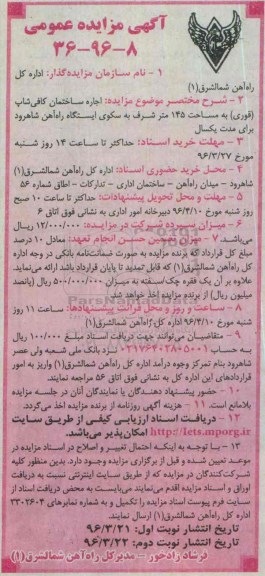 آگهی مزایده عمومی
۳۶-۹۶-۸
۱ - نام سازمان مزایده‌گذار: اداره کل
راه‌آهن شمالشرق(۱)
۲ - شرح مختصر موضوع مزایده: اجاره ساختمان کافی‌شاپ
(قوری) به مساحت ۱۴۵ متر شرف به سکوی ایستگاه راه‌آهن شاهرود
برای مدت یکسال
۳ - مهلت خرید اسناد: حداکثر تا ساعت ۱۴ روز شنبه
مورخ ۹۶/۳/۲۷
۴ - محل خرید حضوری اسناد: اداره کل راه‌آهن شمالشرق(۱)
شاهرود - میدان راه‌آهن - ساختمان اداری - تدارکات - اطاق شماره ۵۶
۵ - مهلت و محل تحویل پیشنهادات: حداکثر تا ساعت ۱۰ صبح
روز شنبه مورخ ۹۶/۴/۱۰ دبیرخانه امور اداری به نشانی فوق اتاق ۶
۶ - میزان سپرده شرکت در مزایده: ۱۲/۰۰۰/۰۰۰ ریال
می‌باشد. ۷ - میزان تضمین حسن انجام تعهد: معادل ۱۰ درصد
مبلغ کل قرارداد که برنده مزایده به صورت ضمانت‌نامه بانکی در وجه اداره
کل راه‌آهن شمالشرق(۱) که قابل تمدید تا پایان قرارداد باشد ارائه می‌نماید.
علاوه بر آن یک فقره چک/سفته به میزان ۵۰۰/۰۰۰/۰۰۰ ریال (پانصد
میلیون ریال) از برنده مزایده اخذ خواهد شد.
۸ - ساعت و روز و محل قرائت پیشنهادها: ساعت ۱۱ روز
شنبه مورخ ۹۶/۴/۱۰ اداره کل راه‌آهن شمالشرق(۱)
۹ - متقاضیان می‌توانند جهت دریافت اسناد مبلغ ۱۰۰/۰۰۰ ریال
به حساب نزد بانک ملی شعبه ولی عصر
شاهرود بنام تمرکز وجوه درآمد اداره کل راه‌آهن شمالشرق(۱) واریز به امور
قراردادهای این اداره کل به نشانی فوق اتاق ۵۶ مراجعه نمایند.
۱۰ - حضور پیشنهاد دهندگان یا نمایندگان آنان در جلسه مزایده
بلامانع است. ۱۱ - هزینه آگهی روزنامه از برنده مزایده اخذ می‌گردد.
۱۲ - دریافت اسناد ارزیابی کیفی از طریق سایت
http://Iets.mporg.ir امکان‌پذیر می‌باشد.
۱۳ - با توجه به اینکه احتمال تغییر و اصلاح در اسناد مزایده در
موعد تعیین شده و قبل از برگزاری مزایده وجود دارد. بدین منظور کلیه
شرکت‌کنندگان در مزایده که از طریق سایت اینترنتی نسبت به دریافت
اوراق و اسناد مزایده اقدام می‌نمایند می‌بایست به محض دریافت اسناد از
سایت فرم پیوست اسناد مزایده را تکمیل و به شماره نمابرهای ۳۳۰۲۶۰۴
اداره کل راه‌آهن شمالشرق(۱) ارسال نمایند.
تاریخ انتشار نوبت اول: ۹۶/۳/۲۱
تاریخ انتشار نوبت دوم: ۹۶/۳/۲۲
فرشاد رادخور - مدیرکل راه‌آهن شمالشرق(۱)